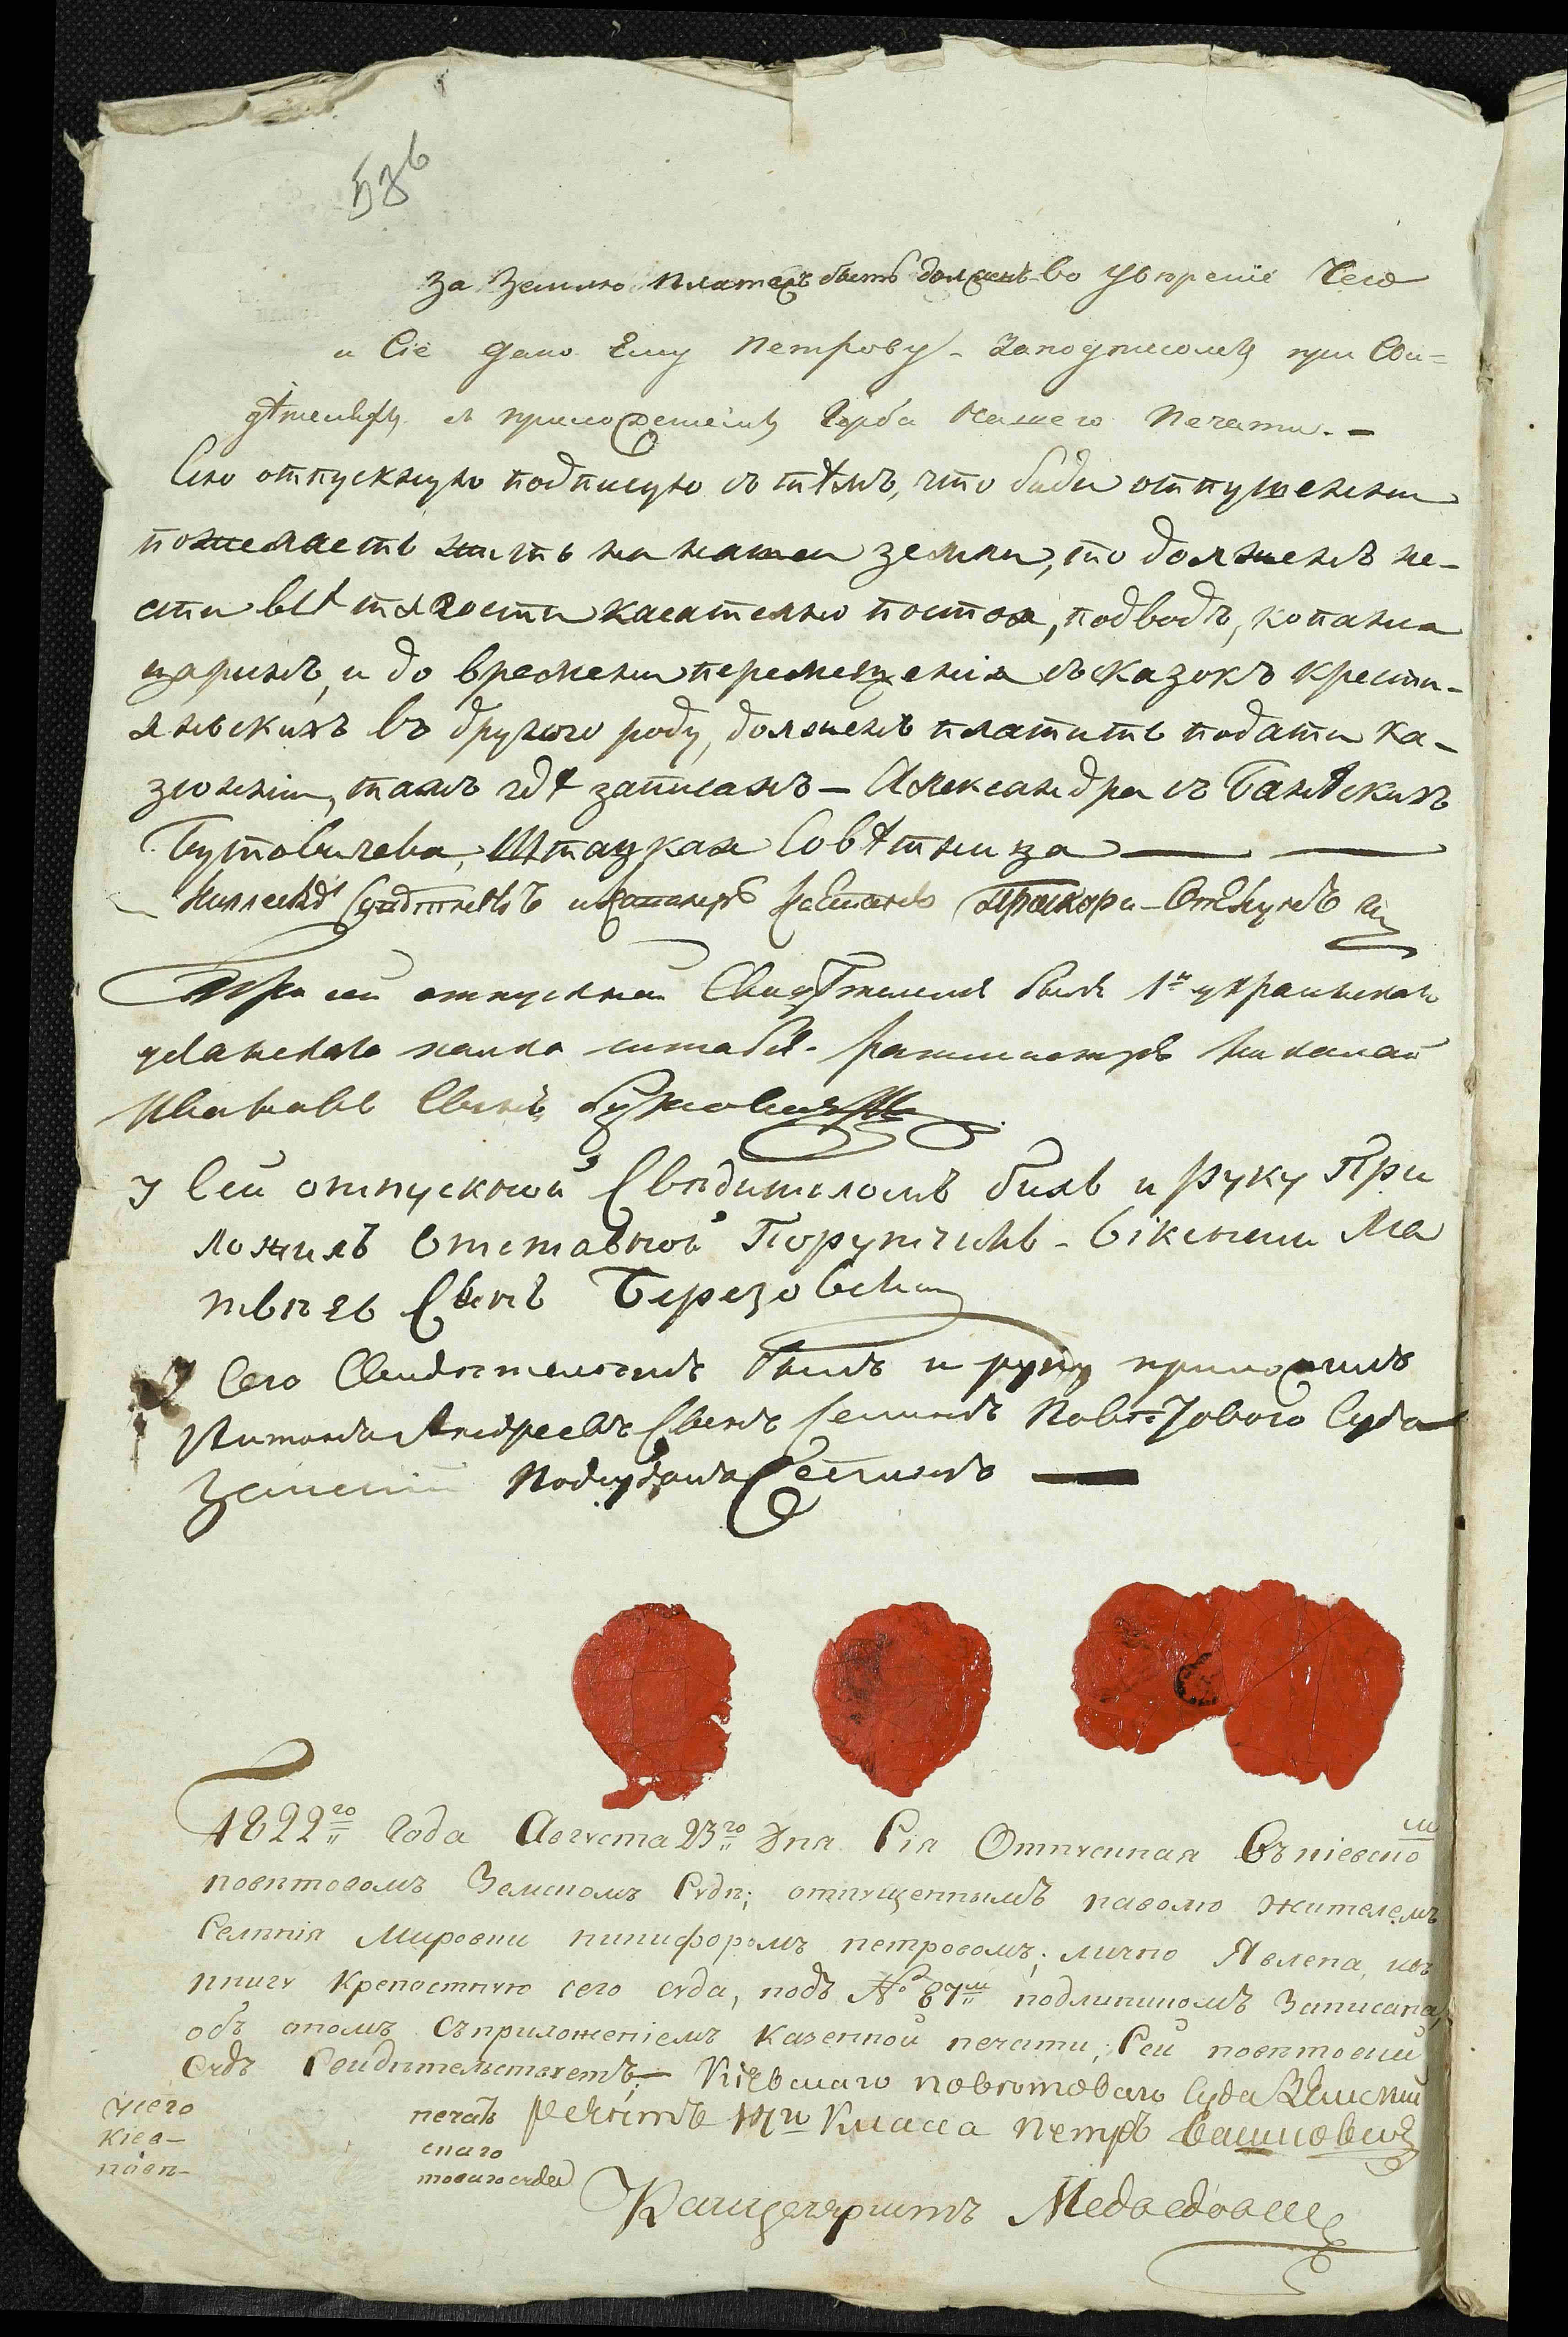 за Землю платежъ быть долженъ во Увѣреніе Чего
и Сіе дано Ему Петрову. Заподписомъ при Сви=
дѣтеляхъ и приложеніемъ Герба Нашего печати.-
Сію отпускную подписую съ тѣмъ, что буди отпущенни
пожелаетъ жить на нашеи земли, то долженъ не-
сти всѣ тягости касателно постоя, подводъ, копанья
царинъ, и до времени перемещенія съ сказокъ крести-
янскихъ въ другого роду, долженъ платить подати ка-
зіоннiи, тамъ гдѣ записанъ — Александра съ Танѣскихъ
Бутовичева, Штацкая Совѣтница
При сей отпускной Свидѣтелемъ былъ 1го украинскаго
уланскаго полка штабсъ-ротмистръ Николай
Ивановъ Сынъ
У Сеи отпускной Свѣдителомъ билъ и руку При
ложилъ Отставной Порутчикъ
твѣевъ Сынъ Березовски
У Сего Свидетелемъ былъ и руку приложилъ
Андреевъ Сынъ Селинъ Повѣтового Суда
Земскій Подсудокъ Селинъ
1822го Года Августа 23го Дня Сія Отпускная Въ Кіевско м
поветовомъ Земскомъ Суде; отпущеннымъ наволю жителемъ
Селенія Мировки никифоромъ петровомъ; лично Явлена, ивъ
книгу Крепостную сего суда, подъ № 87м подлиникомъ Записана,
объ ономъ Съприложеніемъ Казенной печати; Сей поветовий
Судъ Свидетельствуетъ — Кіевскаго поветоваго Суда Земскій
у сего печать Регентъ 14го Класса Петръ
Кіев- скаго
повѣ- товаго суда
Канцеляристъ